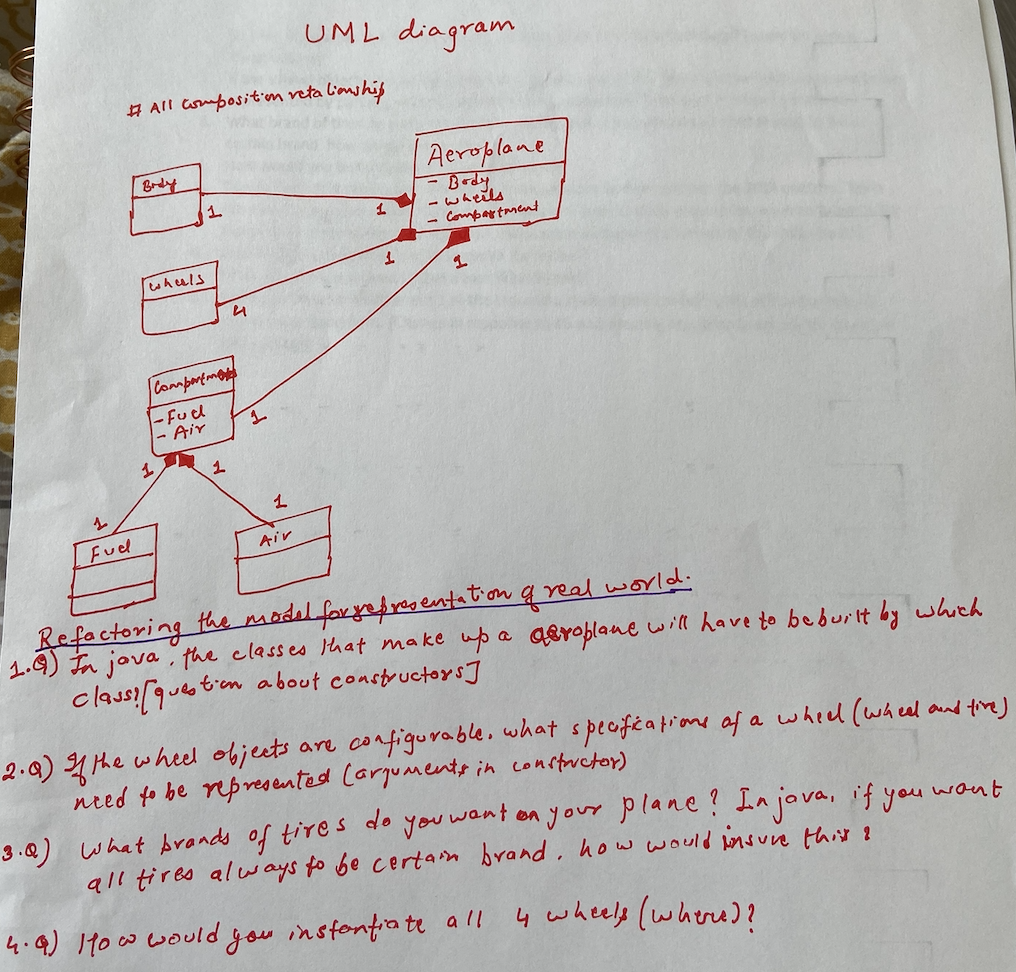 UML diagram
# All composition retalionship
Aeroplane
- Body
- wheels
- Compartment
Body
1
1
1
1
wheels
4
- Fuel
- Air
1
1
1
1
1
Fuel
Air
Refactoring the model for representation of real world.
1.Q) In java, the classes that make up a aeroplane will have to be built by which
class? [question about constructors]
2.Q) If the wheel objects are configurable. what specifications of a wheel (wheel and tire)
need to be represented (arguments in constructor)
3.Q) What brands of tires do you want on your plane? In java, if you want
all tires always to be certain brand, how would insure this?
4.Q) How would you instantiate all 4 wheels (where)?